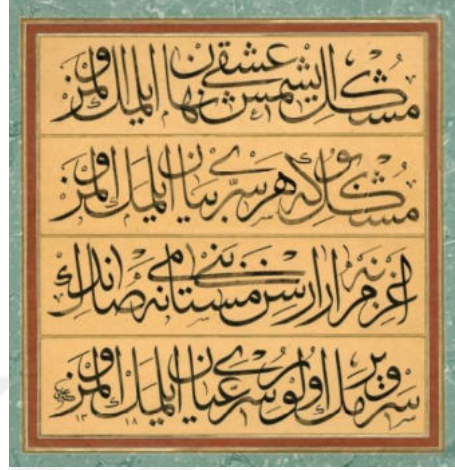 مشكل ايشمش عشقى نهان ايلمك اولمز
مشكل بو كه هر سرّى بيان ايلمك اولمز
اغزم نه ارارسن بنى مستانه مى صاندك
سر ويرمك اولور سرى عيان ايلمك اولمز
١٣١٨